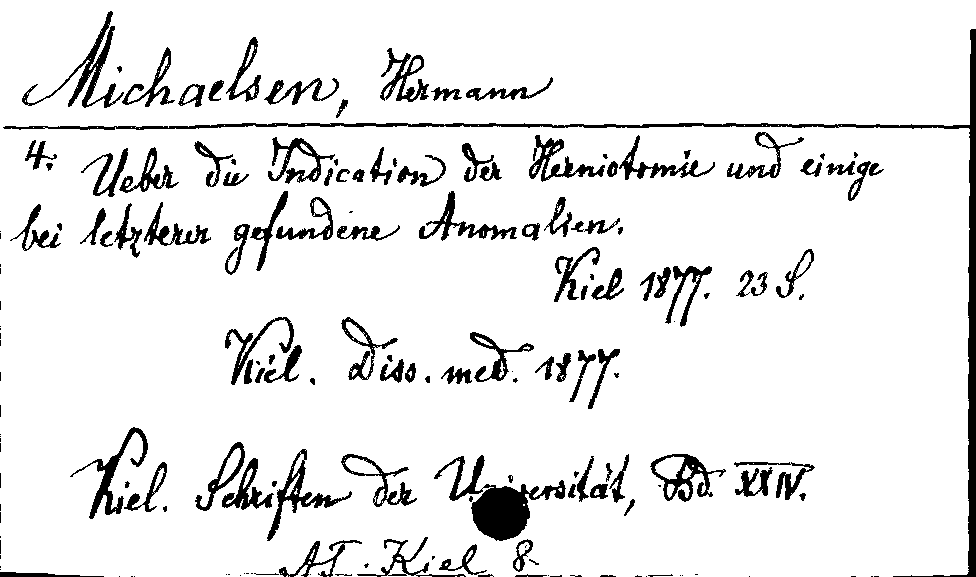 Michaelsen, Hermann
4: Ueber die Indication der Herniotomie und einige
bei letzterer gefundene Anomalien.
Kiel 1877. 23 S.
Kiel. Diss. med. 1877.
Kiel. Schriften der Universität, Bd. XXIV.
AT. Kiel 8.